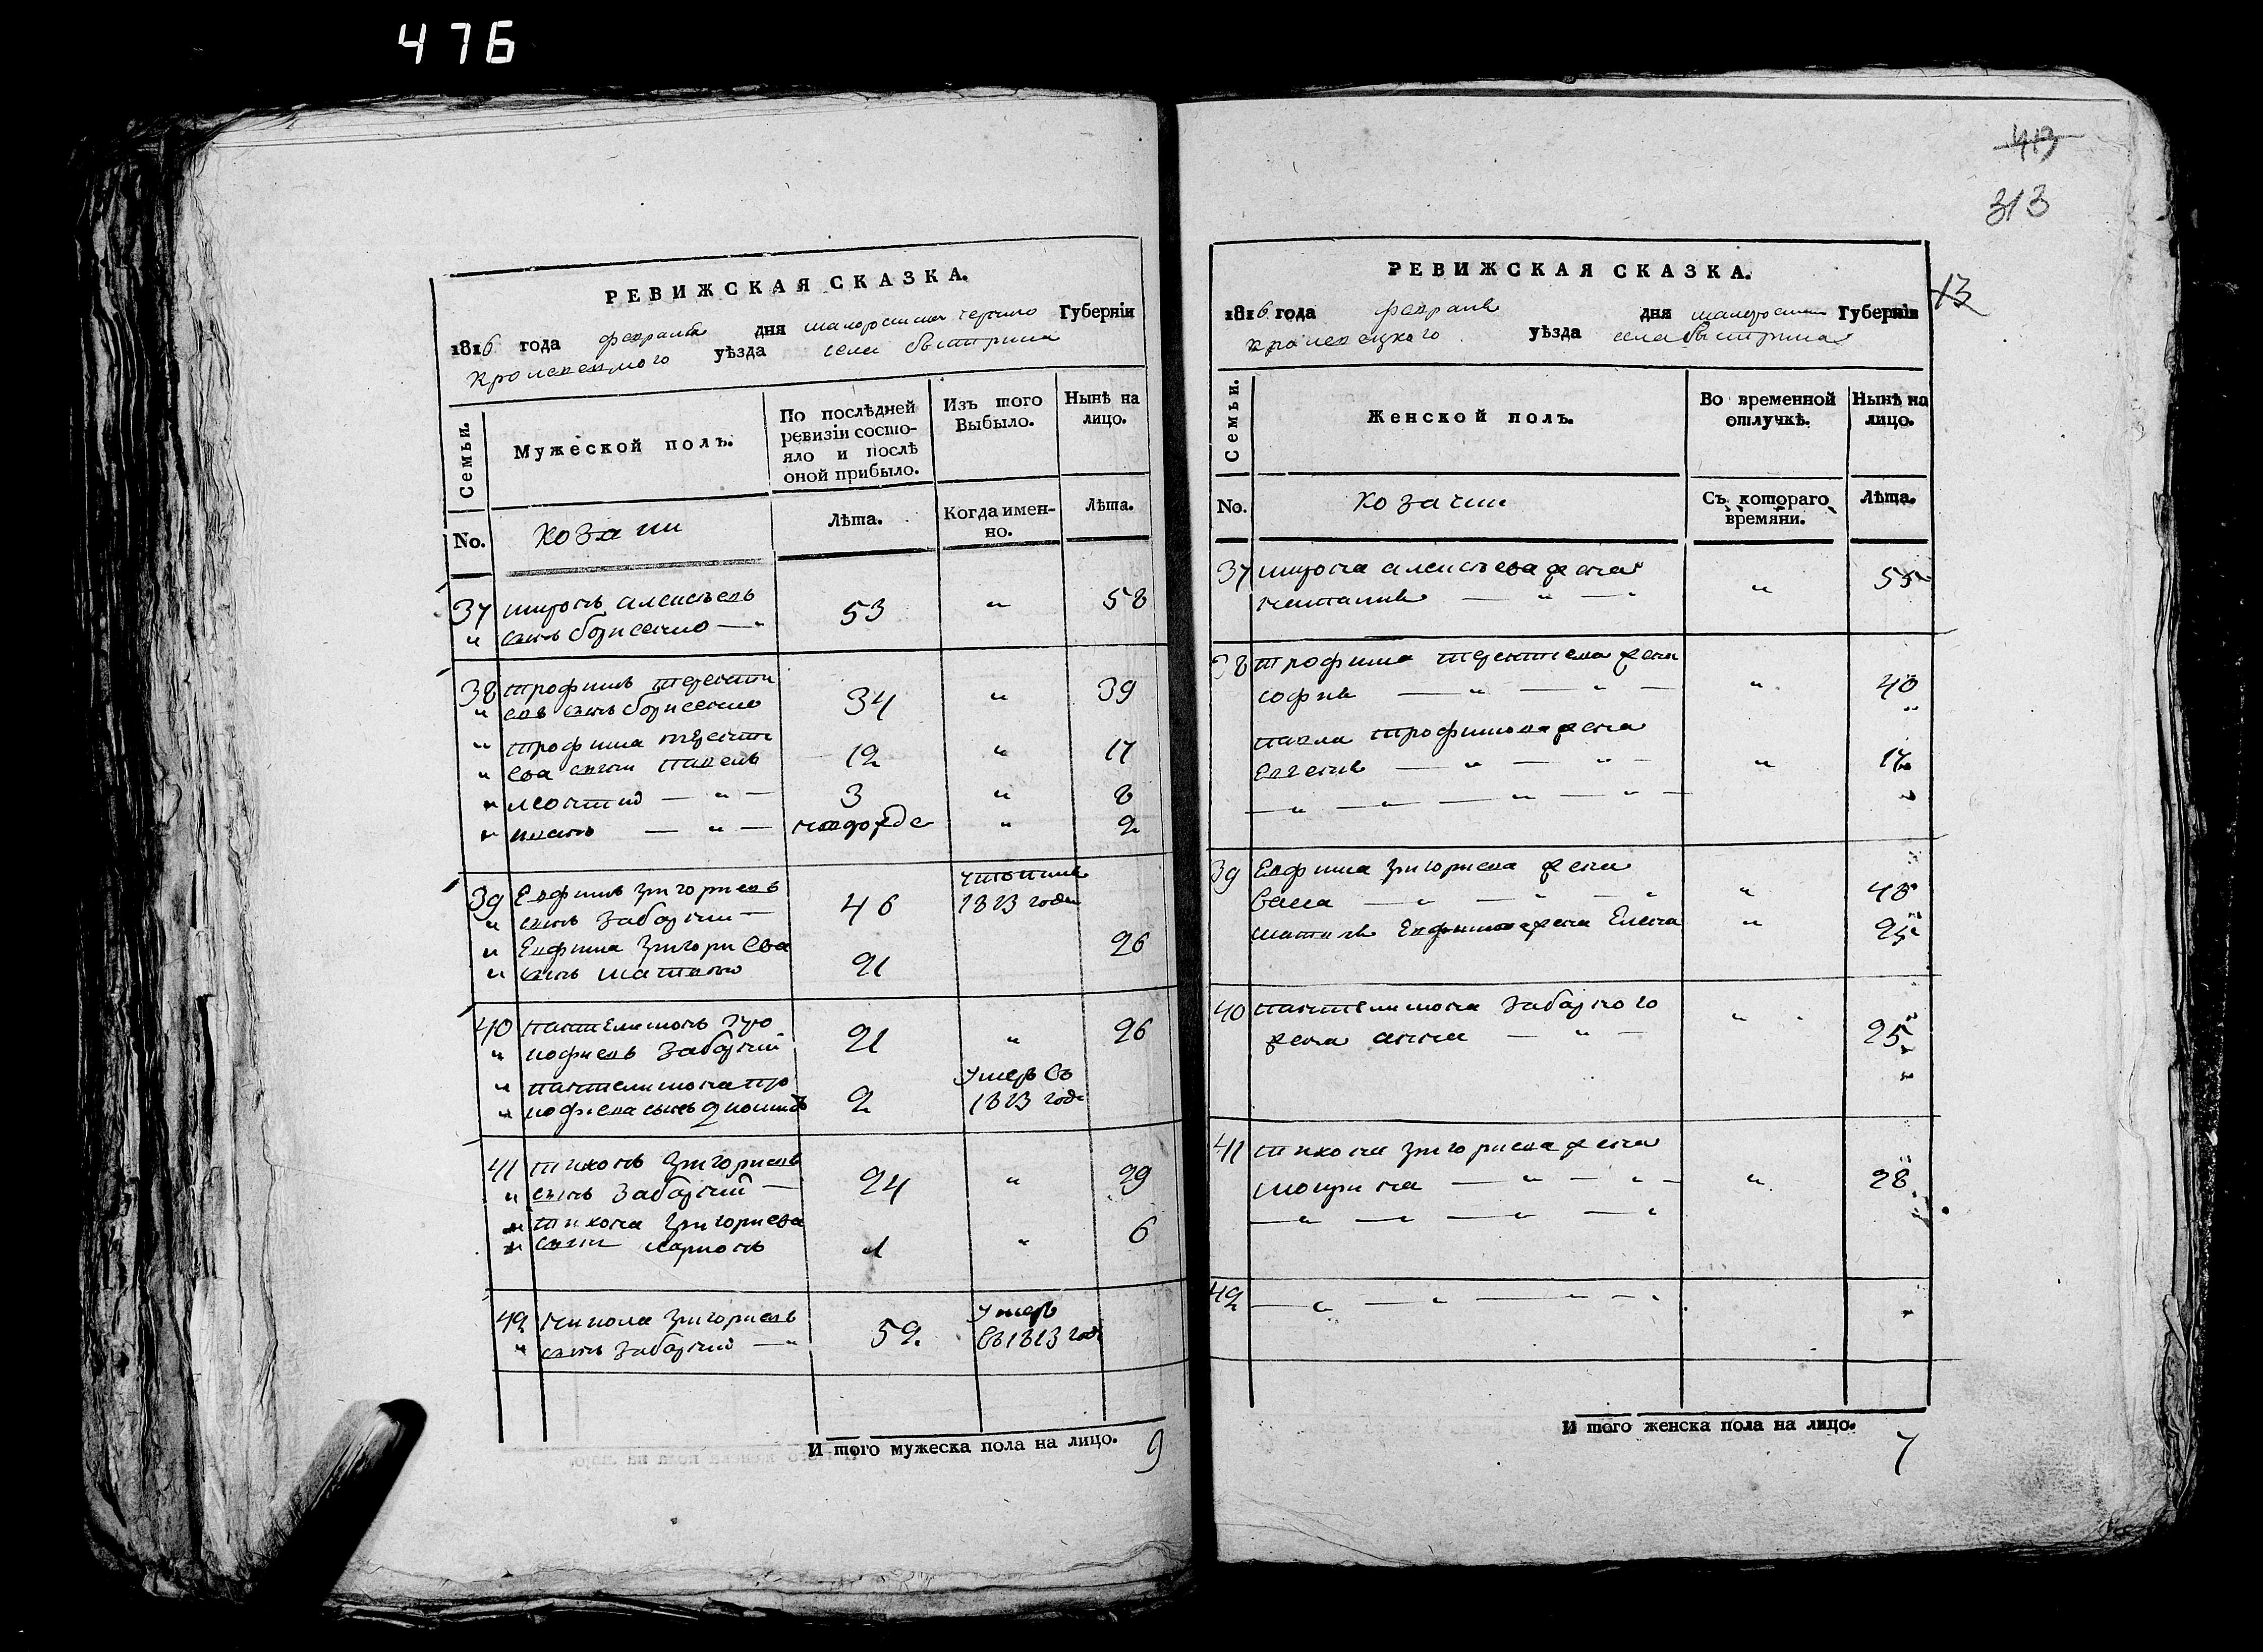 476
РЕВИЖСКАЯ СКАЗКА.
1816 года февраля дня малоросийской черниго Губерніи
кролевецкого уѣзда села быстрика
Семьи.
Мужеской полъ.
По послѣдней ревизіи состо-
яло и послѣ
оной прибыло.
Изъ того
Выбыло.
Нынѣ на
лицо.
No.
козаки
Лѣта.
Когда имен-
но.
Лѣта.
37 миронъ алексѣевъ
" сынъ борисенко — " 53 " 58
38 трофимъ теренти
" евъ сынъ борисенко 34 " 39
" трофима теренти
" ева сыни павелъ 12 " 17
" леонтий — " — 3 " 8
" иванъ — " — " 2
39 Евфимъ григориевъ
" сынъ заборский — 46 1813 года
" Евфима григориева
" сынъ 21 26
40 пантелимонъ про
" кофиевъ заборский 21 " 26
" пантелимона про
" кофиева сынъ 2 умеръ въ
1813 годе
41 тихонъ григориевъ
" сынъ заборский — 24 " 29
" тихона григориева
" сынъ карпонъ 1 " 6
42 никола григориевъ
" сынъ заборский — " 52 умеръ
въ 1813 годе
И того мужеска пола на лицо. 9
413
313
13
РЕВИЖСКАЯ СКАЗКА.
1816 года февраля дня малоросий Губерніи
кролевецкого уѣзда села быстрика
Семьи.
Женской полъ.
Во временной
отлучкѣ.
Нынѣ на
лицо.
No.
козачки
Съ котораго
времяни.
Лѣта.
37 мирона алексѣева жена
наталия — " — " " 55
38 трофима терентиева жена
софия — " — " — " 40
павла трофимова жена
Евгения — " — " — " 17
— " — " — " — " —
39 Евфима григориева жена
васса — " — " — " " 48
Евфимова жена Елена " 25
40 пантелимона заборского "
жена анна — " — 25
41 тихона григориева жена
мокрина — " — " — " 28
— " — " — " — "
42 — " — " — " — "
И того женска пола на лицо. 7